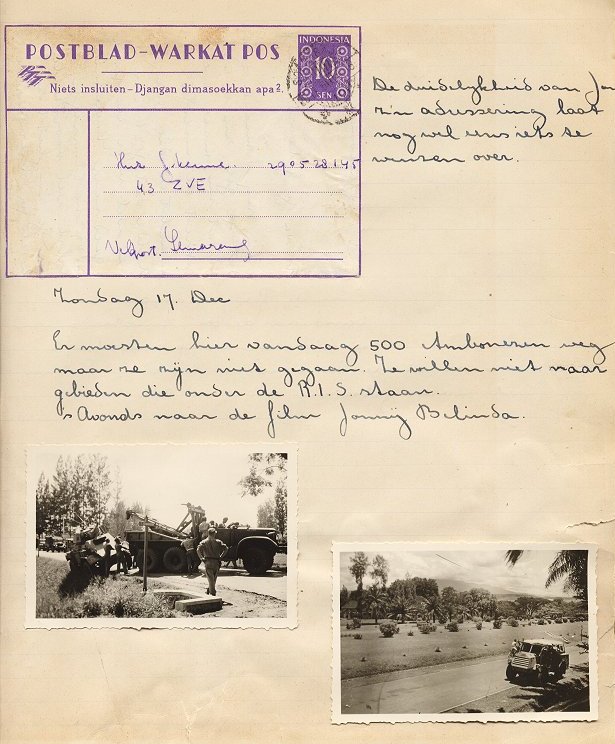 POSTBLAD-WARKAT POS
Niets insluiten-Djangan dimasoekkan apa2.
INDONESIA
10
SEN
De duidelijkheid van Jan
z'n adressering laat
nog wel eens iets te
wensen over.
290528145
43 ZVE
Veldpost. Semarang
Zondag 17. Dec
Er moesten hier vandaag 500 Ambonezen weg
maar ze zijn niet gegaan. Ze willen niet naar
gebieden die onder de R.I.S. staan.
's Avonds naar de film Jonny Belinda.